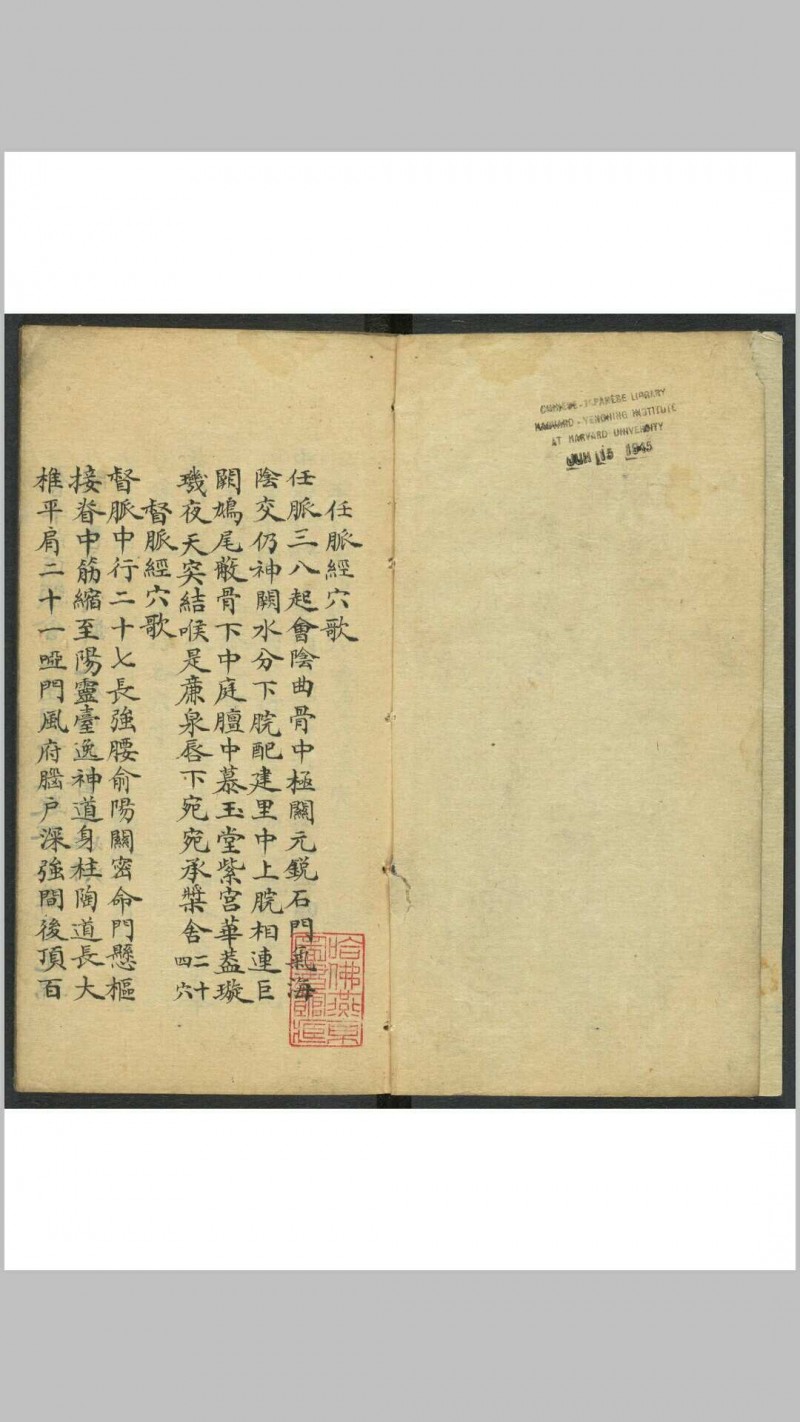 CHINESE-JAPANESE LIBRARY
HARVARD-YENCHING INSTITUTE
AT HARVARD UNIVERSITY
JUN 15 1945
任脈經穴歌
任脈三八起會陰曲骨中極關元銳石門氣海
陰交仍神闕水分下脘配建里中上脘相連巨
闕鳩尾蔽骨下中庭膻中慕玉堂紫宮華蓋璇
璣夜天突結喉是廉泉唇下宛宛承漿舍二十四穴
督脈經穴歌
督脈中行二十七長強腰俞陽關密命門懸樞
接脊中筋縮至陽靈臺逸神道身柱陶道長大
椎平肩二十一啞門風府腦戶深強間後頂百
哈佛燕京
圖書館